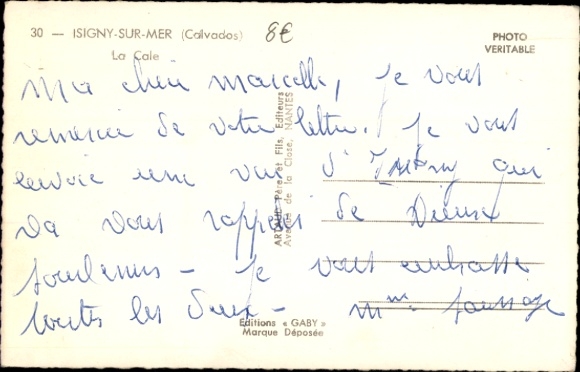 30 — ISIGNY-SUR-MER (Calvados)
8€
PHOTO
VERITABLE
La Cale
Ma chère Marcelle, je vous
remercie de votre lettre. Je vous
envoie une vue d'Isigny qui
va vous rappeler de vieux
souvenirs - je vous embrasse
toutes les deux - Mme
ARTAUD Père et Fils, Editeurs
Avenue de la Close, NANTES
Editions « GABY »
Marque Déposée